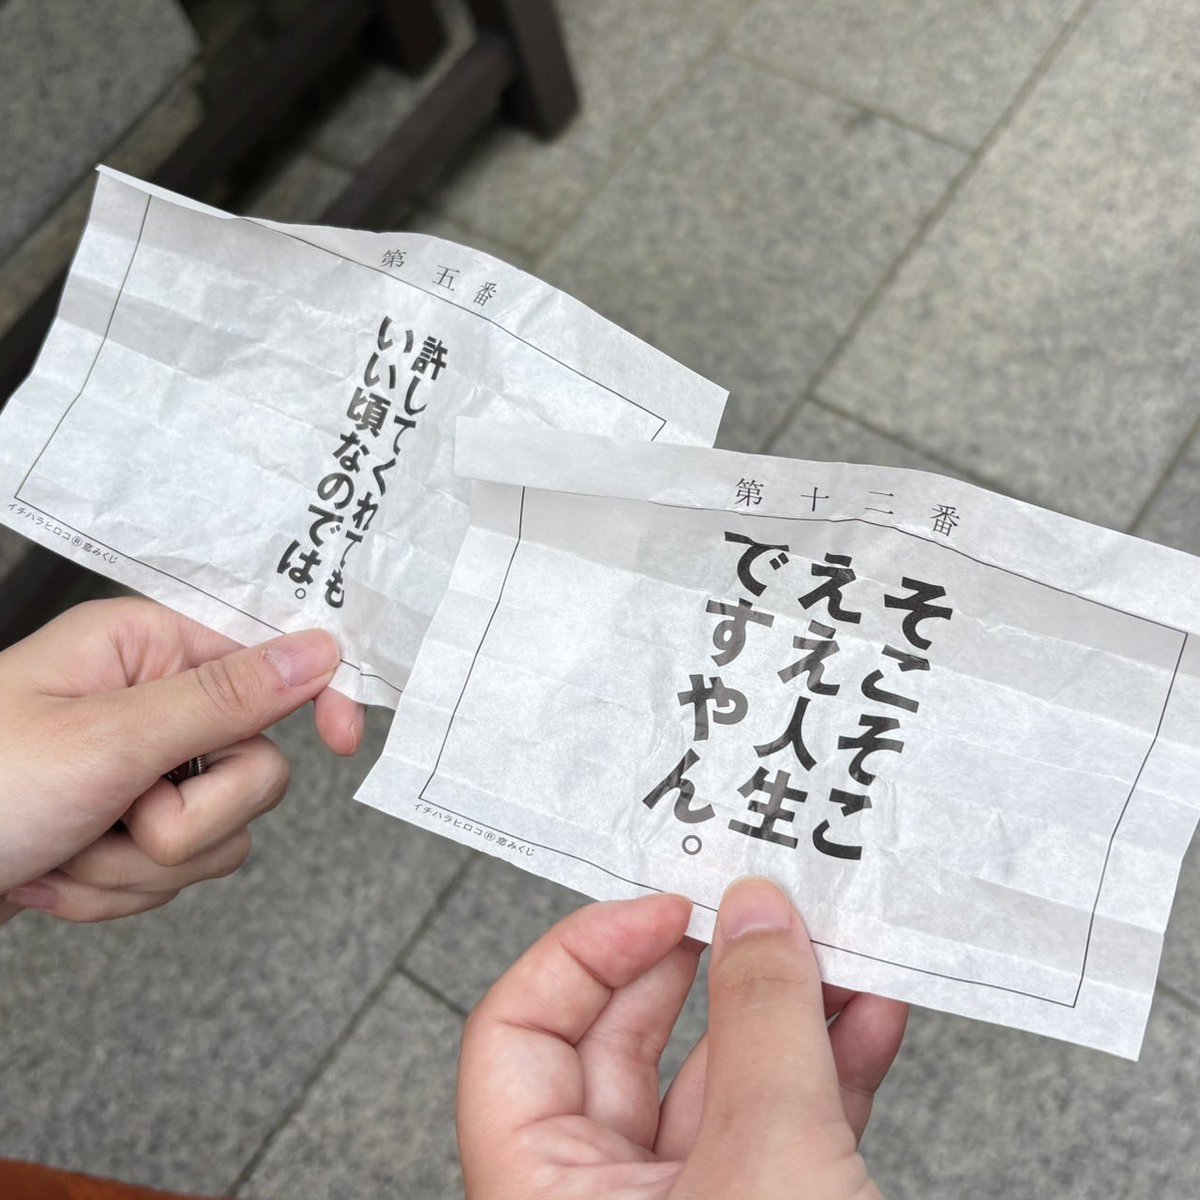 第五番
許してくれても
いい頃なのでは。
イチハラヒロコ®恋みくじ
第十二番
そこそこ
ええ人生
ですやん。
イチハラヒロコ®恋みくじ